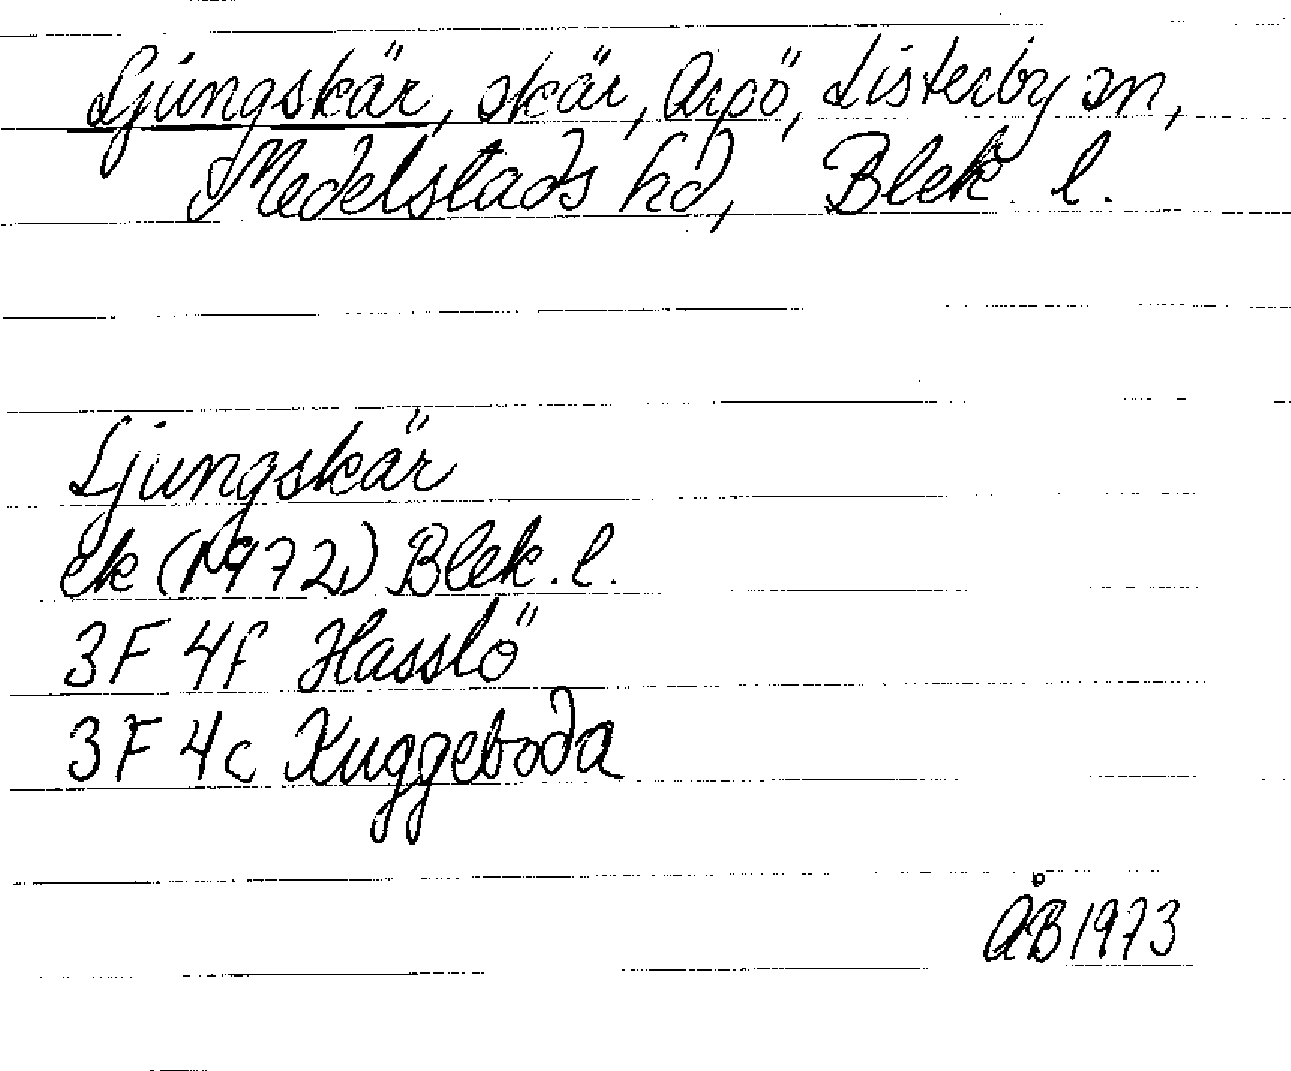 Ljungskär, skär, Arpö, Listerby sn,
Medelstads hd, Blek. l.
Ljungskär
ek (1972) Blek. l.
3F 4f Hasslö
3F 4c Kuggeboda
ÅB 1973